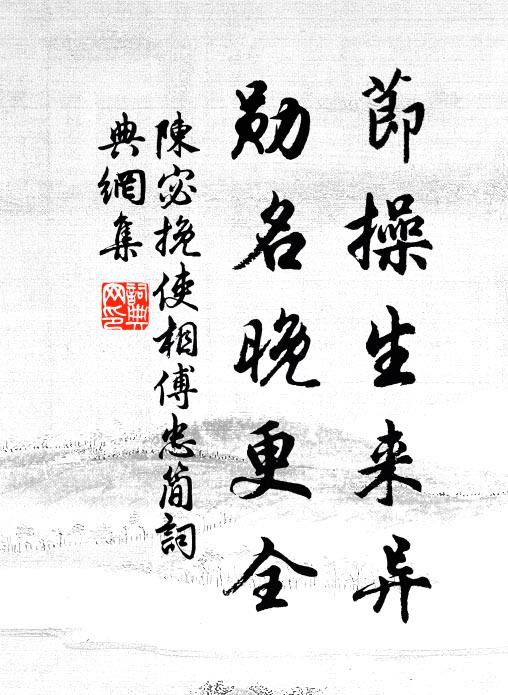 節操生来异
勋名晚更全
陳宓挽使相傅忠簡詞
典網集
詞典
网印